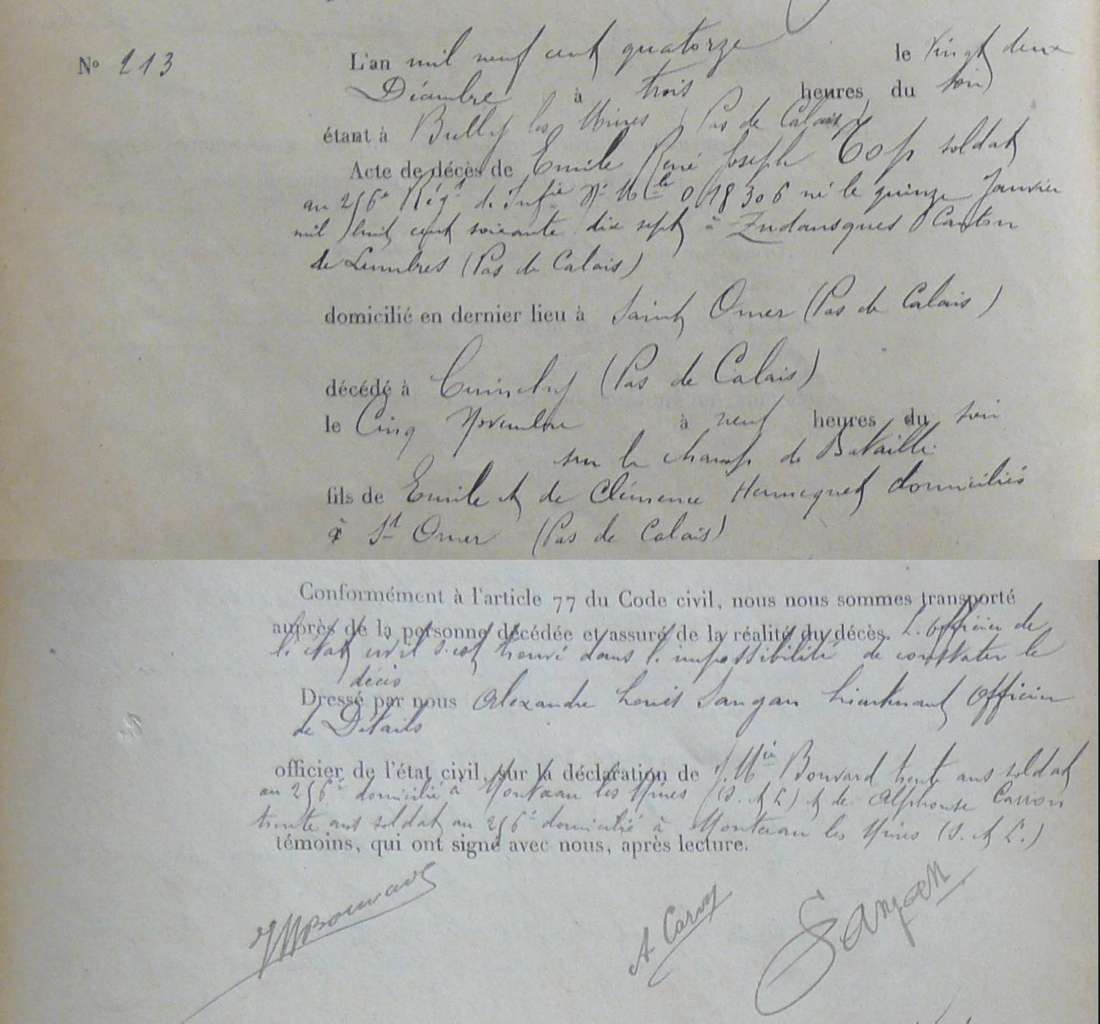 N° 213 L'an mil neuf cent quatorze le vingt deux
Décembre à trois heures du soir
étant à Bully les Mines (Pas de Calais)
Acte de décès de Emile René Joseph Top soldat
au 256e Régt de Infie N° Mle 018306 né le quinze Janvier
mil huit cent soixante dix sept à Zudausques Canton
de Lumbres (Pas de Calais)
domicilié en dernier lieu à Saint Omer (Pas de Calais)
décédé à Cuinchy (Pas de Calais)
le Cinq Novembre à neuf heures du soir
sur le champ de Bataille
fils de Emile et de Clémence Hennequet domiciliés
à St Omer (Pas de Calais)
Conformément à l'article 77 du Code civil, nous nous sommes transporté
auprès de la personne décédée et assuré de la réalité du décès. L'officier de
l'état civil s'est trouvé dans l'impossibilité de constater le
décès
Dressé par nous Alexandre Louis Sangan Lieutenant Officier
de Détails
officier de l'état civil, sur la déclaration de J. Mie Bouvard trente ans soldat
au 256e domicilié à Montceau les Mines (S. et L) et de Alphonse Carron
trente ans soldat au 256e domicilié à Montceau les Mines (S. et L.)
témoins, qui ont signé avec nous, après lecture.
JMBouvard A Caron Sangan